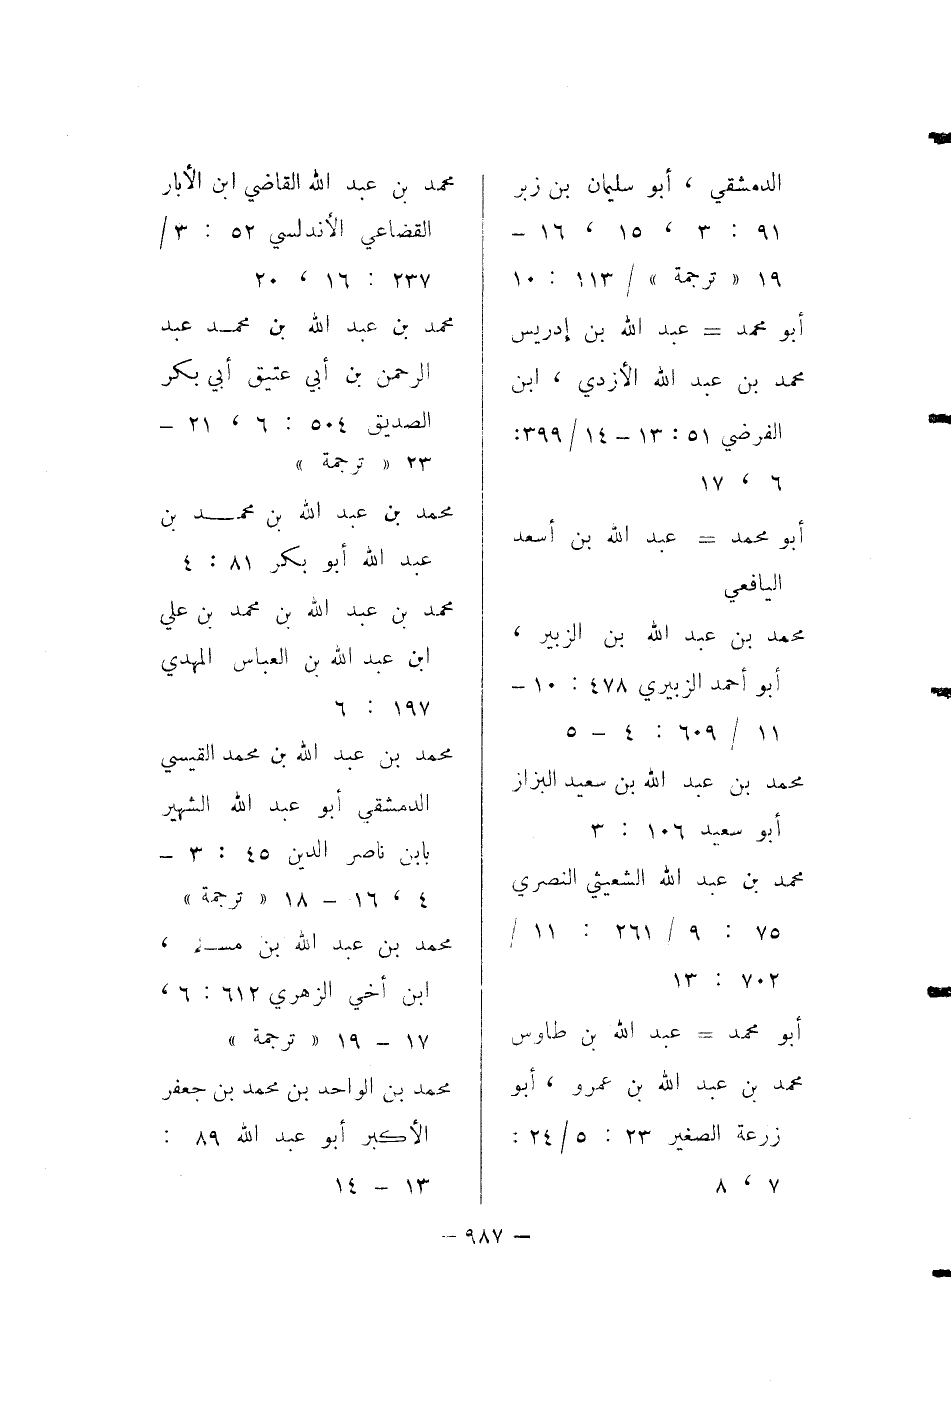 الدمشقي ، أبو سليمان بن زبر
٩١ : ٣ ، ١٥ ، ١٦ –
١٩ « ترجمة » / ١١٣ : ١٠
أبو محمد = عبد الله بن إدريس
محمد بن عبد الله الأزدي ، ابن
الفرضي ٥١ : ١٣ – ١٤ / ٣٩٩ :
٦ ، ١٧
أبو محمد = عبد الله بن أسعد
اليافعي
محمد بن عبد الله بن الزبير ،
أبو أحمد الزبيري ٤٧٨ : ١٠ –
١١ / ٦٠٩ : ٤ – ٥
محمد بن عبد الله بن سعيد البزاز
أبو سعيد ١٠٦ : ٣
محمد بن عبد الله الشعيثي النصري
٧٥ : ٩ / ٢٦١ : ١١ /
٧٠٢ : ١٣
أبو محمد = عبد الله بن طاوس
محمد بن عبد الله بن عمرو ، أبو
زرعة الصغير ٢٣ : ٥ / ٢٤ :
٧ ، ٨
محمد بن عبد الله القاضي ابن الأبار
القضاعي الأندلسي ٥٢ : ٣ /
٢٣٧ : ١٦ ، ٢٠
محمد بن عبد الله بن محمد عبد
الرحمن بن أبي عتيق أبي بكر
الصديق ٥٠٤ : ٦ ، ٢١ –
٢٣ « ترجمة »
محمد بن عبد الله بن محمد بن
عبد الله أبو بكر ٨١ : ٤
محمد بن عبد الله بن محمد بن علي
ابن عبد الله بن العباس المهدي
١٩٧ : ٦
محمد بن عبد الله بن محمد القيسي
الدمشقي أبو عبد الله الشهير
بابن ناصر الدين ٤٥ : ٣ –
٤ ، ١٦ – ١٨ « ترجمة »
محمد بن عبد الله بن ،
ابن أخي الزهري ٦١٢ : ٦ ،
١٧ – ١٩ « ترجمة »
محمد بن الواحد بن محمد بن جعفر
الأكبر أبو عبد الله ٨٩ :
١٣ – ١٤
– ٩٨٧ –